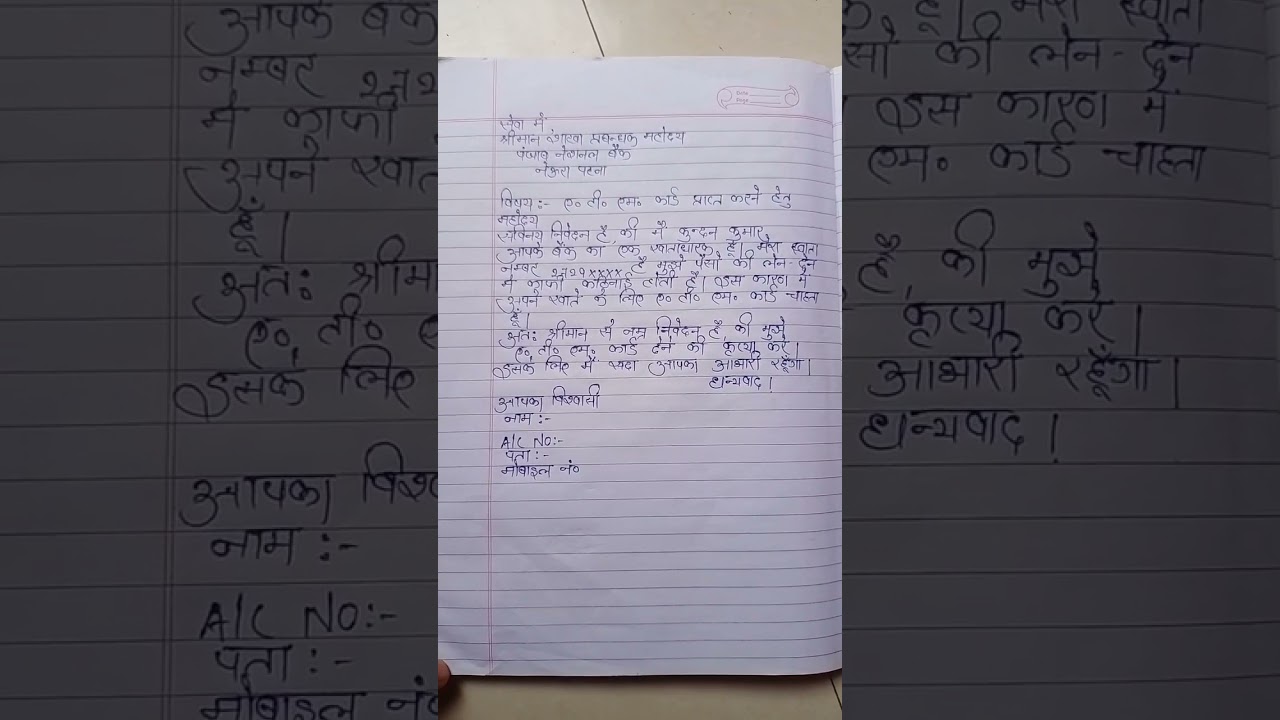 Date
Page
सेवा में
श्रीमान शाखा प्रबन्धक महोदय
पंजाब नेशनल बैंक
पटना
विषय :- ए० टी० एम० कार्ड प्राप्त करने हेतु
महोदय
सविनय निवेदन है की मैं कुन्दन कुमार
आपके बैंक का एक खाताधारक हूँ। मेरा खाता
नम्बर xxxx है मुझे पैसो की लेन-देन
में काफी कठिनाई होती है। इस कारण में
अपने खाते के लिए ए० टी० एम० कार्ड चाहता
हूँ।
अतः श्रीमान से नम्र निवेदन है की मुझे
ए० टी० एम० कार्ड देने की कृप्या करे।
इसके लिए में सदा आपका आभारी रहूँगा।
धन्यवाद।
आपका विश्वासी
नाम :-
A/C No:-
पता :-
मोबाइल नं०